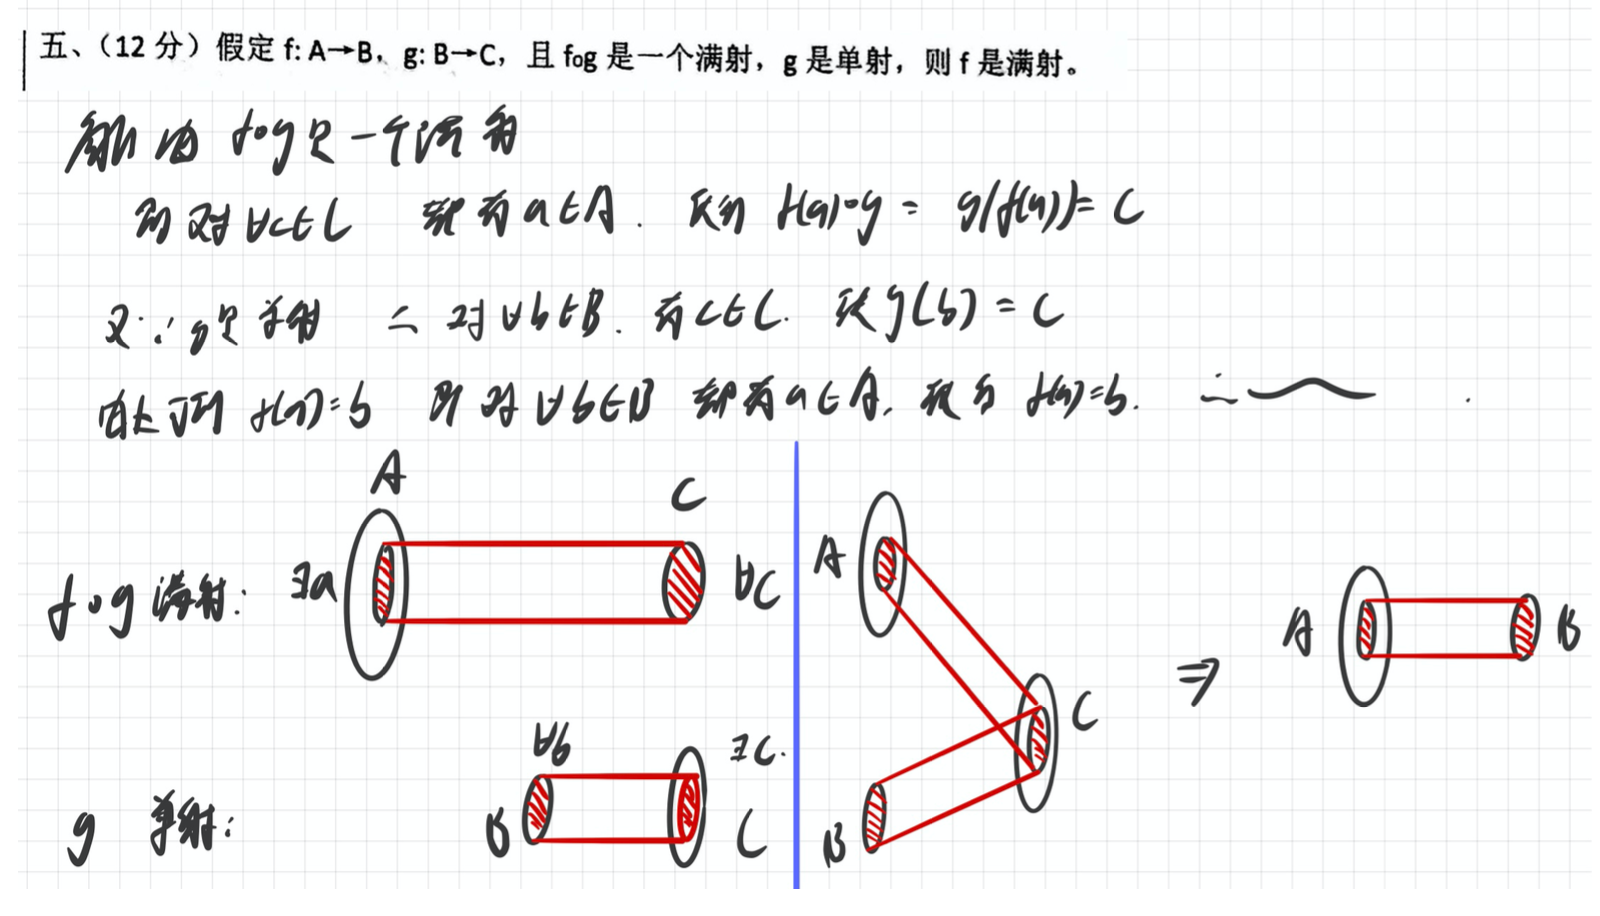 五、（12 分）假定 f: A→B，g: B→C，且 fog 是一个满射，g 是单射，则 f 是满射。
解 由 f∘g 是一个满射
即 对 ∀c∈C 都有 a∈A. 使得 f(a)∘g = g(f(a)) = C
又∵ g是单射 ∴ 对 ∀b∈B. 有 c∈C. 使 g(b) = C
由上可得 f(a)=b 即 对 ∀b∈B 都有 a∈A, 使得 f(a)=b. ∴
A C
f∘g 满射: ∃a ∀C
A C B
⇒ A B
g 单射: ∀b ∃C.
B C